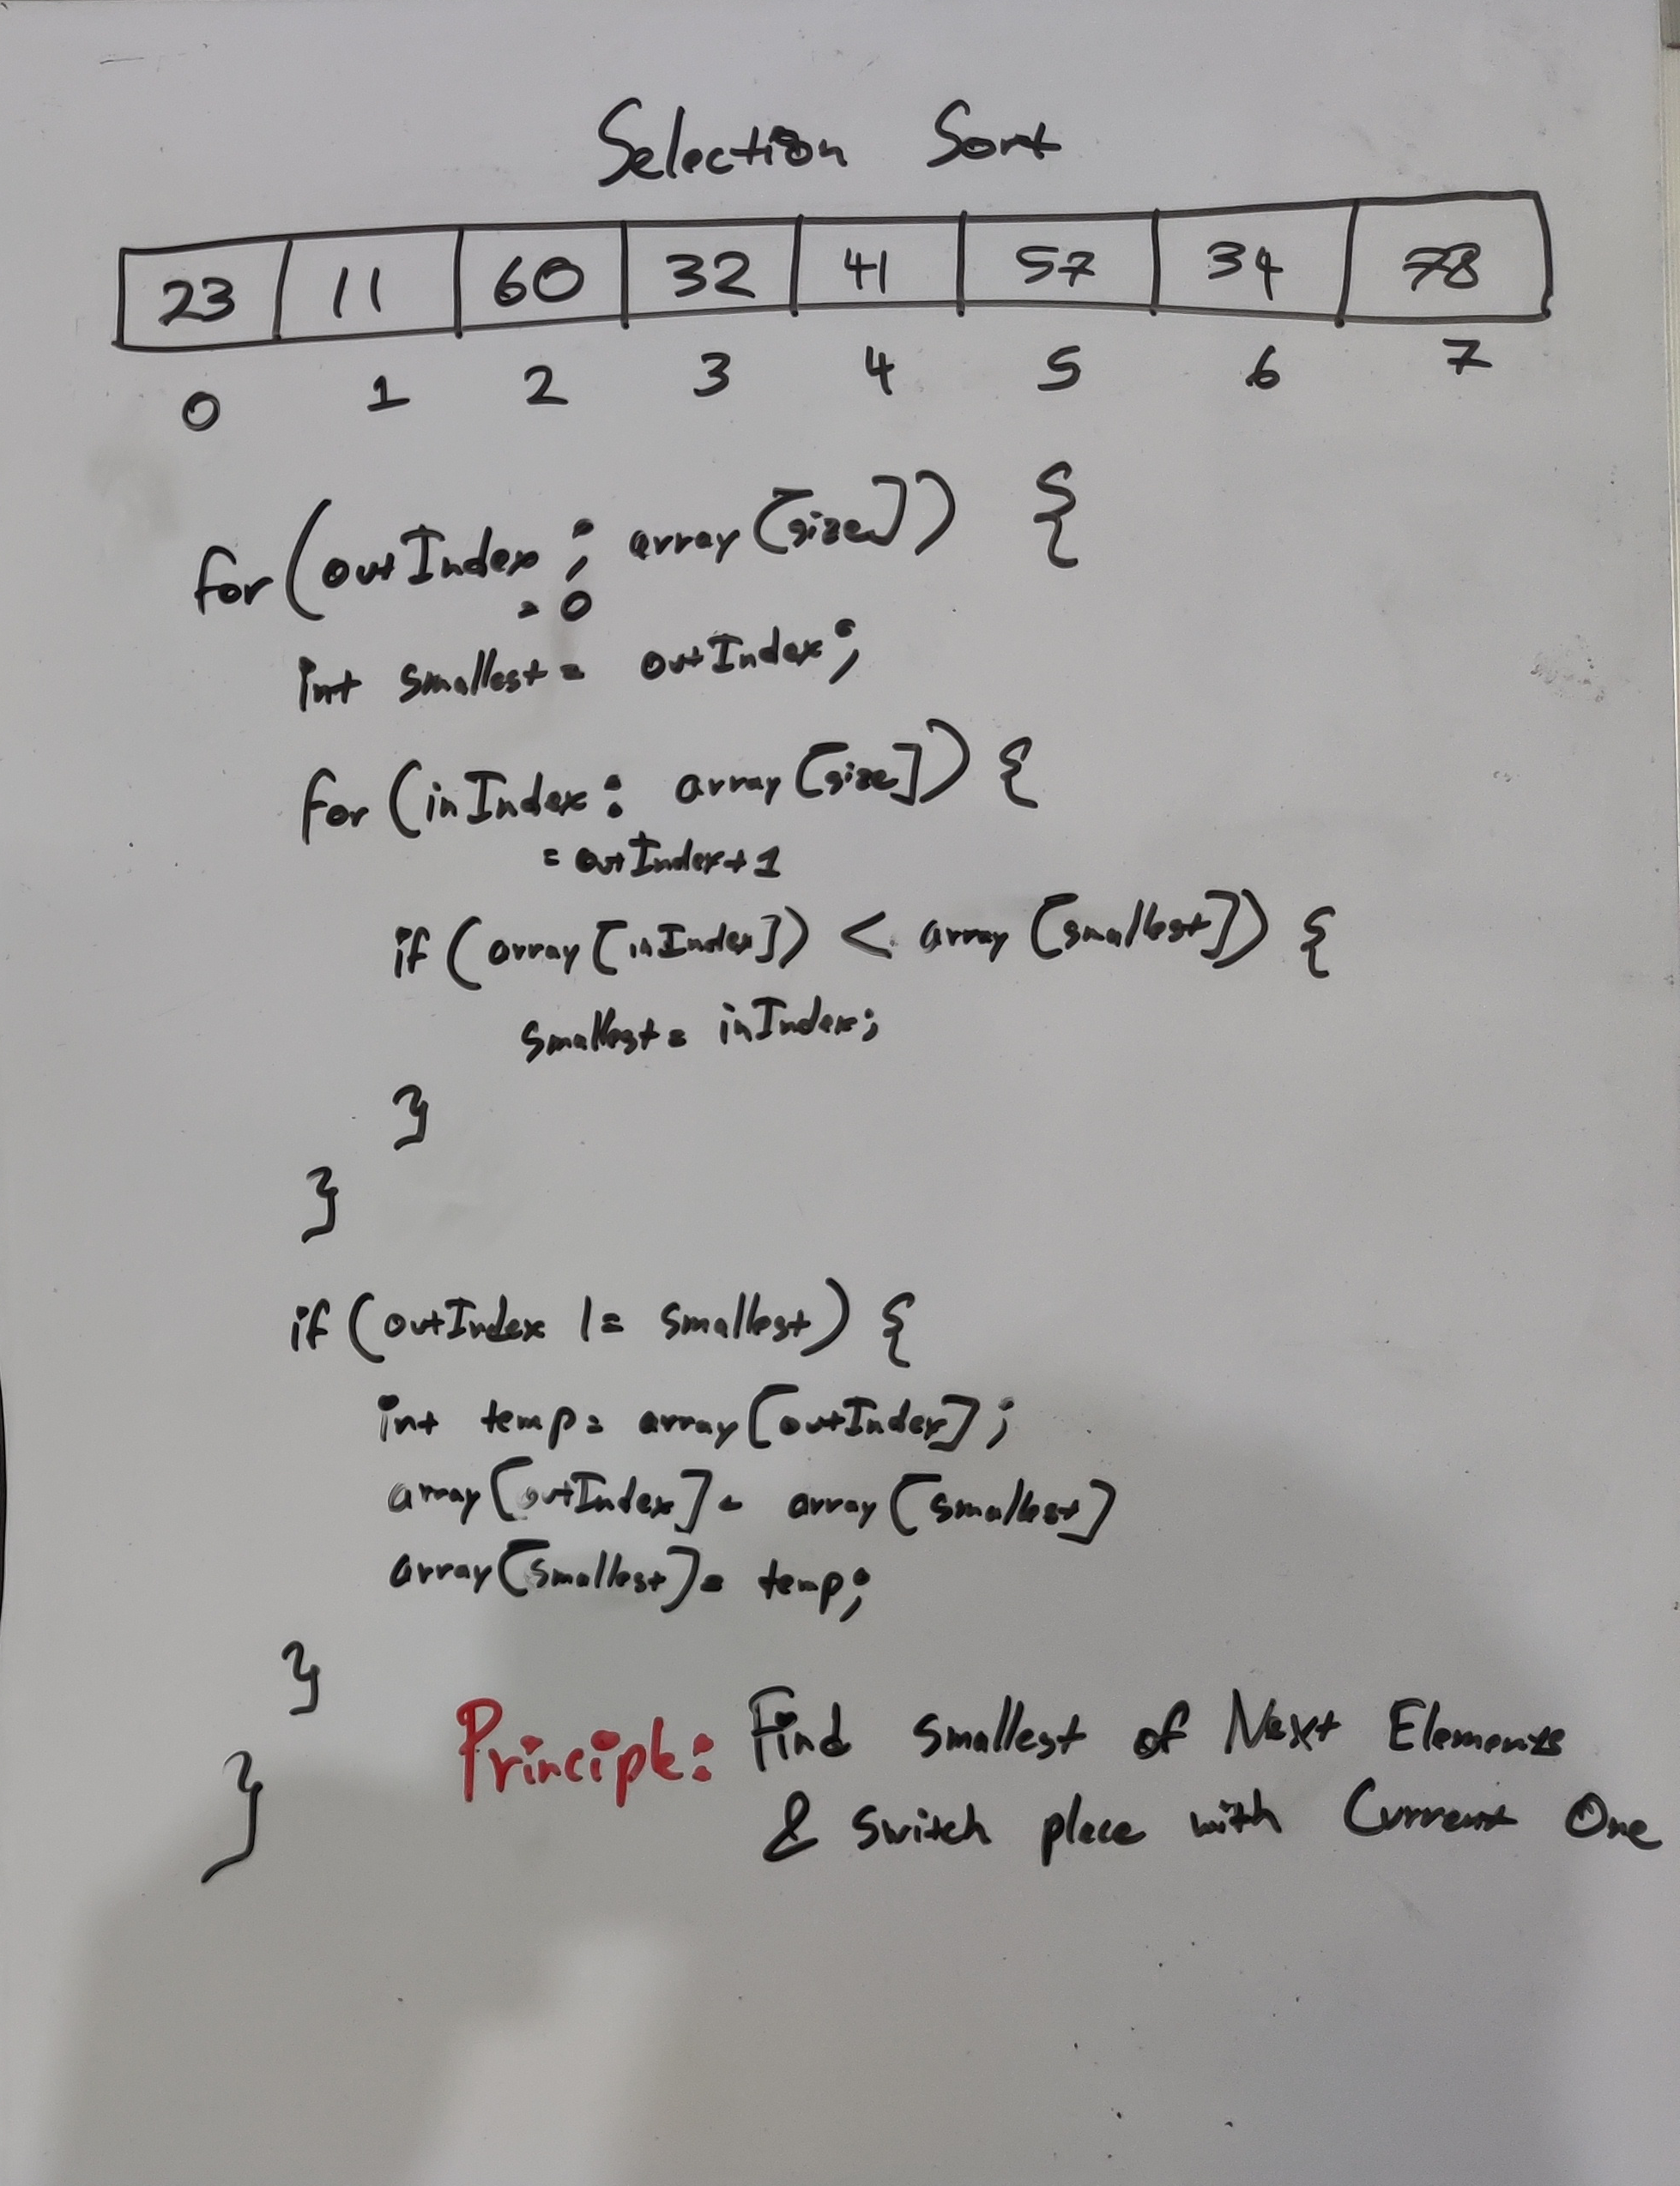 Selection Sort
23 11 60 32 41 57 34 78
0 1 2 3 4 5 6 7
for (outIndex ; array [size]) {
= 0
int smallest = outIndex ;
for (inIndex : array [size]) {
= outIndex + 1
if (array [inIndex]) < array [smallest]) {
smallest = inIndex ;
}
}
if (outIndex != smallest) {
int temp = array [outIndex] ;
array [outIndex] = array [smallest]
array [smallest] = temp ;
}
}
Principle: Find smallest of Next Elements
& switch place with Current One